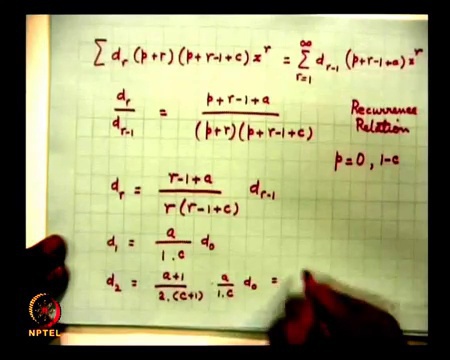 ∑ d_r (p+r) (p+r-1+c) x^r = ∑_{r=1}^{∞} d_{r-1} (p+r-1+a) x^r
d_r / d_{r-1} = (p+r-1+a) / ((p+r)(p+r-1+c))
Recurrence
Relation
p=0, 1-c
d_r = (r-1+a) / (r(r-1+c)) d_{r-1}
d_1 = a / (1.c) d_0
d_2 = (a+1) / (2.(c+1)) · a / (1.c) d_0 =
NPTEL